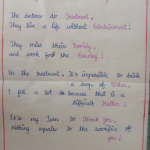 The doctors do Treatment,
They live a life without Entertainment!
They miss their Family,
and work for the Country!
In the treatment, It's impossible to drink
a cup of Water,
I feel a lot because that is a
difficult Matter!
It's my Turn to Thank You,
Nothing equals to the sacrifice of
you!